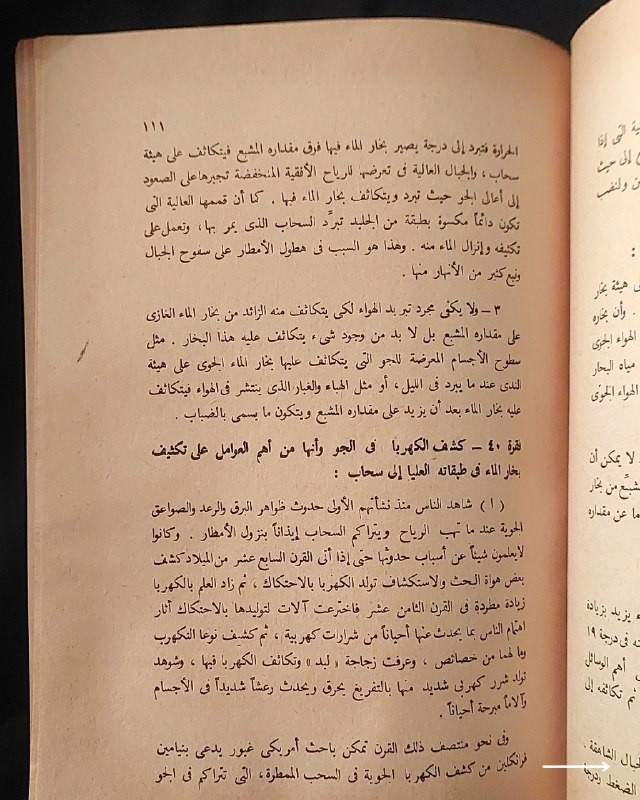 ١١١
الحرارة فتبرد إلى درجة يصير بخار الماء فيها فوق مقداره المشبع فيتكاثف على هيئة
سحاب، والجبال العالية فى تعرضها للرياح الأفقية المنخفضة تجبرها على الصعود
إلى أعالى الجو حيث تبرد ويتكاثف بخار الماء فيها . كما أن قممها العالية التى
تكون دائماً مكسوة بطبقة من الجليد تبرِّد السحاب الذى يمر بها، وتعمل على
تكثيفه وإنزال الماء منه . وهذا هو السبب فى هطول الأمطار على سفوح الجبال
ونبع كثير من الأنهار منها .
٣ – ولا يكفى مجرد تبريد الهواء لكى يتكاثف منه الزائد من بخار الماء الغازى
على مقداره المشبع بل لا بد من وجود شىء يتكاثف عليه هذا البخار . مثل
سطوح الأجسام المعرضة للجو التى يتكاثف عليها بخار الماء الجوى على هيئة
الندى عند ما يبرد فى الليل، أو مثل الهباء والغبار الذى ينتشر فى الهواء فيتكاثف
عليه بخار الماء بعد أن يزيد على مقداره المشبع ويتكون ما يسمى بالضباب .
فقرة ٤٠ – كشف الكهربا فى الجو وأنها من أهم العوامل على تكثيف
بخار الماء فى طبقاته العليا إلى سحاب :
( ا ) شاهد الناس منذ نشأتهم الأولى حدوث ظواهر البرق والرعد والصواعق
الجوية عند ما تهب الرياح ويتراكم السحاب إيذاناً بنزول الأمطار . وكانوا
لايعلمون شيئاً عن أسباب حدوثها حتى إذا أتى القرن السابع عشر من الميلاد كشف
بعض هواة البحث والاستكشاف تولد الكهربا بالاحتكاك ، ثم زاد العلم بالكهربا
زيادة مطردة فى القرن الثامن عشر فاخترعت آلات لتوليدها بالاحتكاك أثار
اهتمام الناس بما يحدث عنها أحياناً من شرارات كهربية ، ثم كشف نوعا التكهرب
وما لهما من خصائص ، وعرفت زجاجة « ليد » وتكاثف الكهربا فيها ، وشوهد
تولد شرر كهربى شديد منها بالتفريغ يحرق ويحدث رعشاً شديداً فى الأجسام
وآلاماً مبرحة أحياناً .
وفى نحو منتصف ذلك القرن تمكن باحث أمريكى غيور يدعى بنيامين
فرانكلين من كشف الكهربا الجوية فى السحب الممطرة، التى تتراكم فى الجو